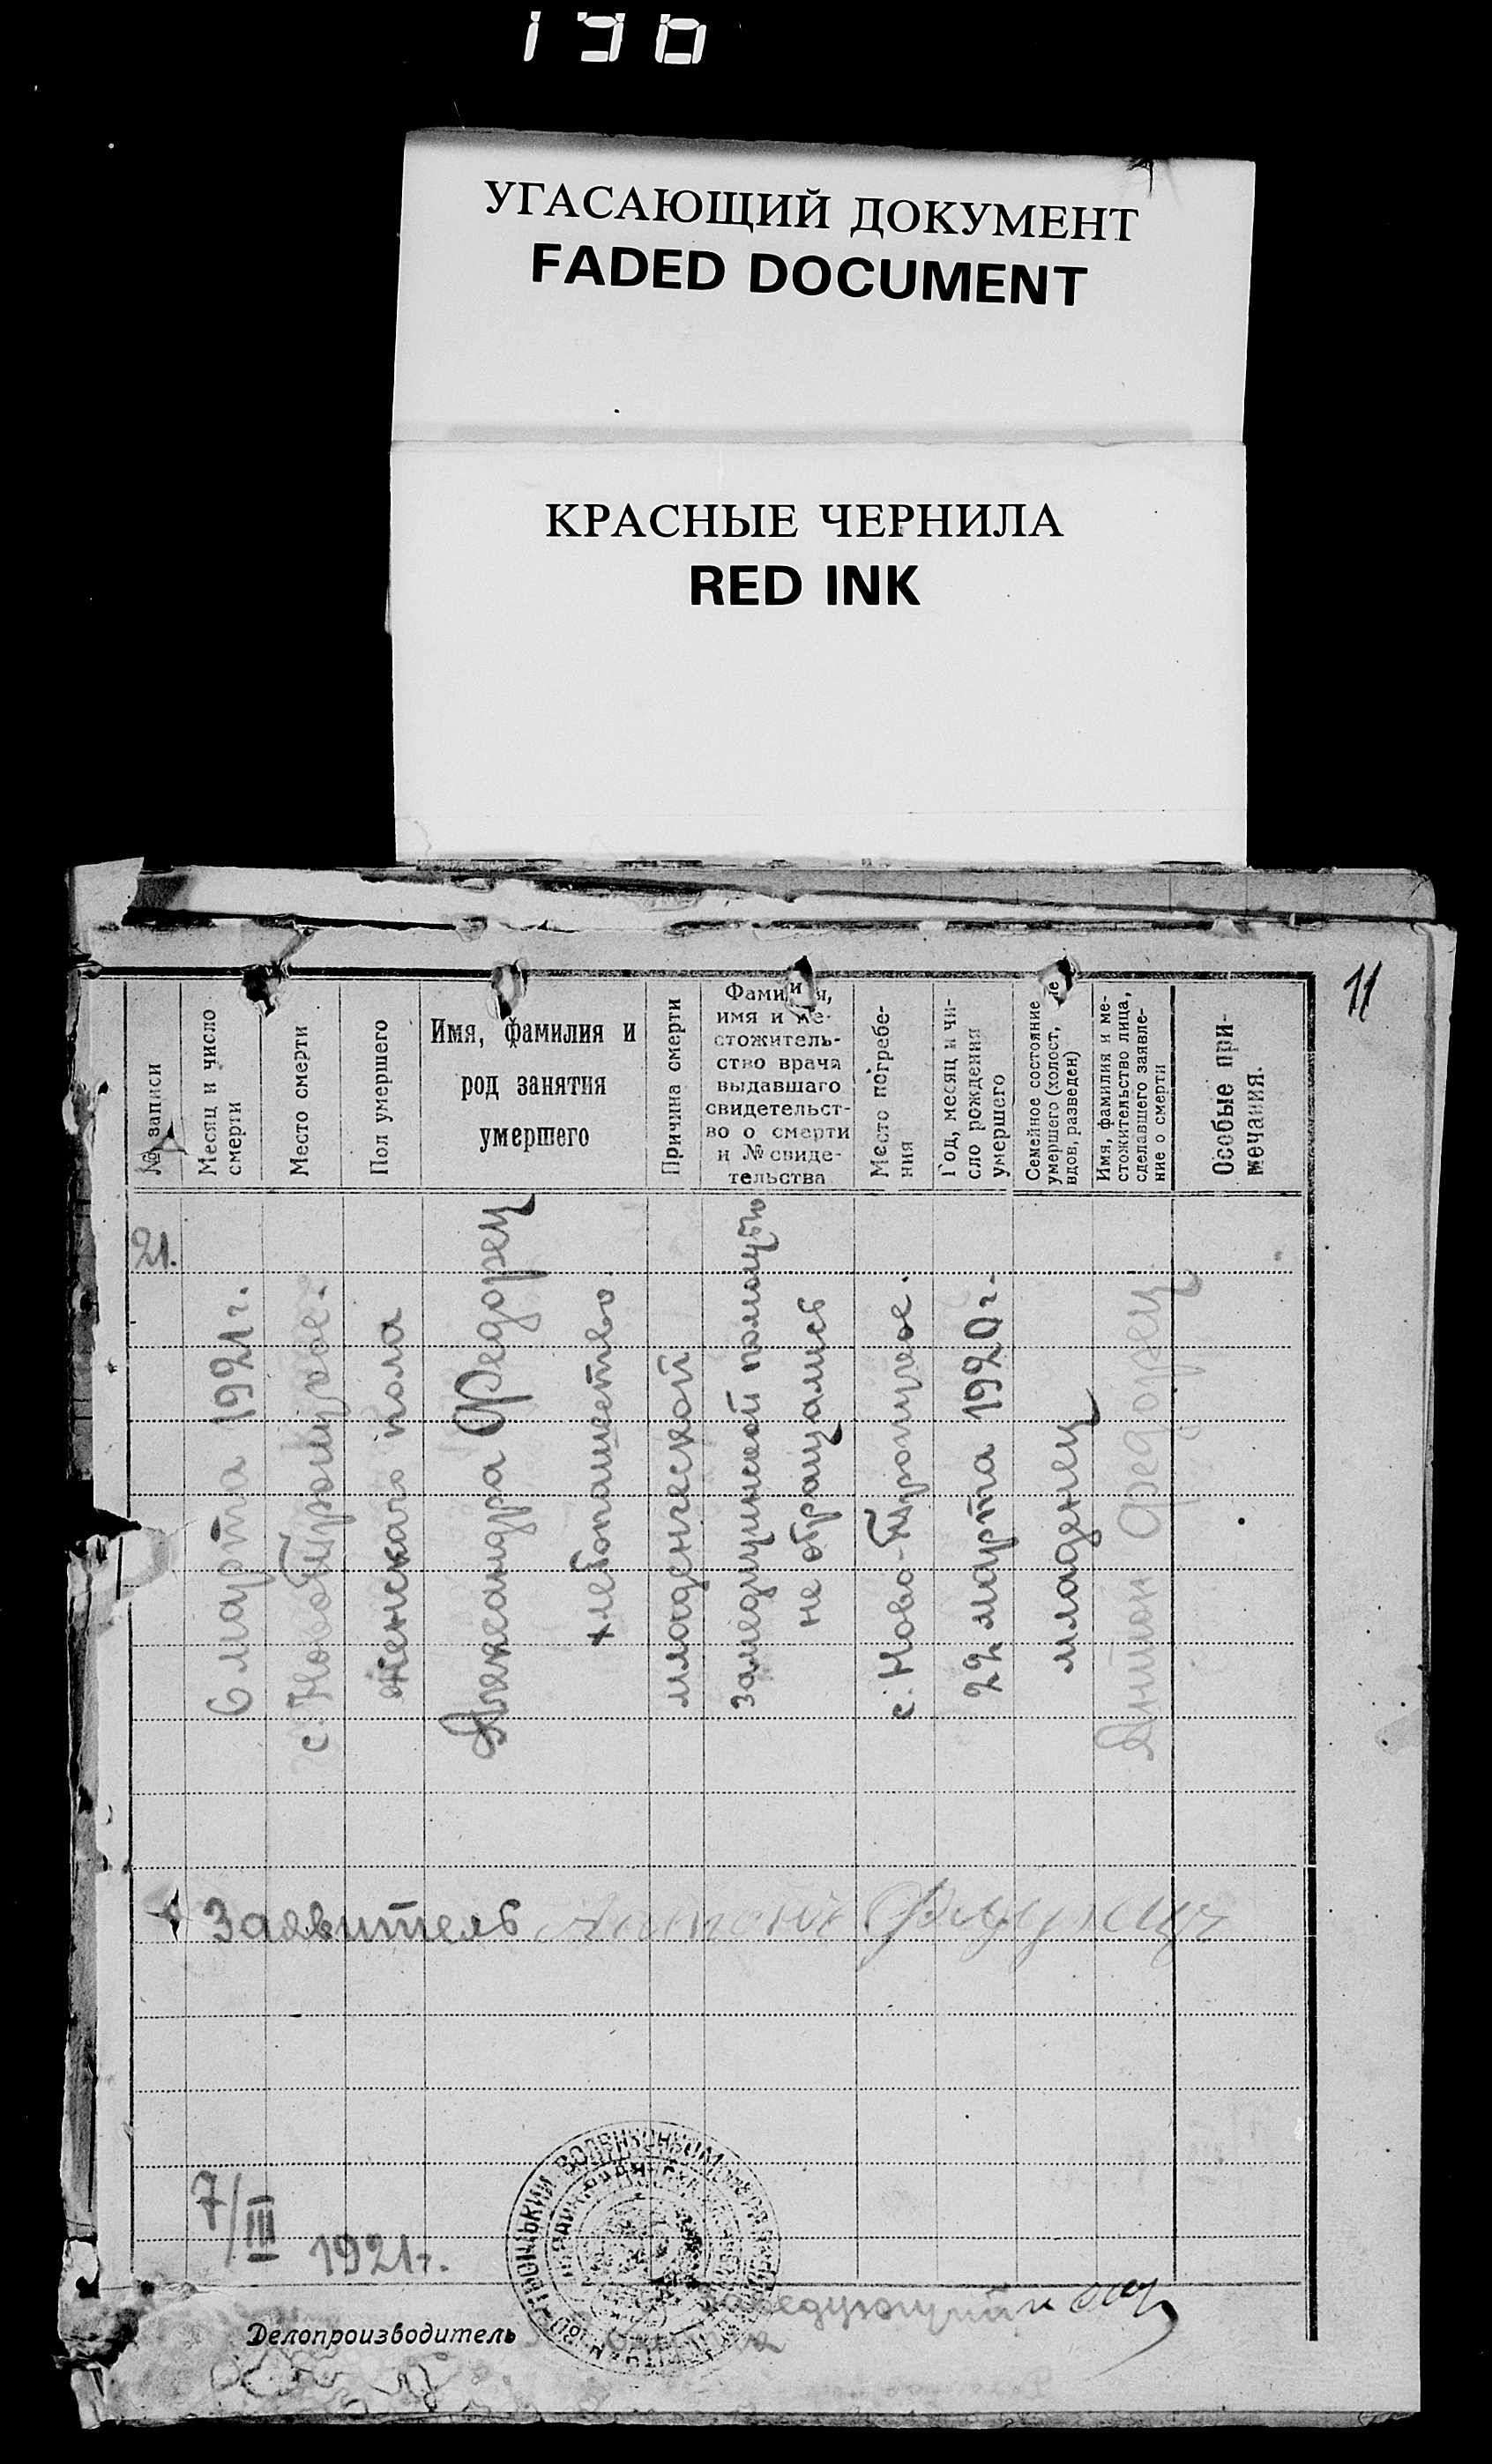 УГАСАЮЩИЙ ДОКУМЕНТ
FADED DOCUMENT
КРАСНЫЕ ЧЕРНИЛА
RED INK
11
№ записи
Месяц и число
смерти
Место смерти
Пол умершего
Имя, фамилия и
род занятия
умершего
Причина смерти
Фамилия,
имя и ме-
стожитель-
ство врача
выдавшаго
свидетельст-
во о смерти
и № свиде-
тельства
Место погребе-
ния
Год, месяц и чи-
сло рождения
умершего
Семейное состояние
умершего (холост, не
вдов, разведен)
Имя, фамилия и ме-
стожительство лица,
сделавшего заявле-
ние о смерти
Особые при-
мечания.
21.
6 марта 1921 г.
с. Ново-Троицкое.
женскаго пола
Александра Федорец
хлебопашество
младенческой
за медицинской помощью
не обращались
с. Ново-Троицкое.
22 марта 1920 г.
младенец
Антон Федорец
Заявитель Антон
7/III 1921 г.
Заведующий
Делопроизводитель